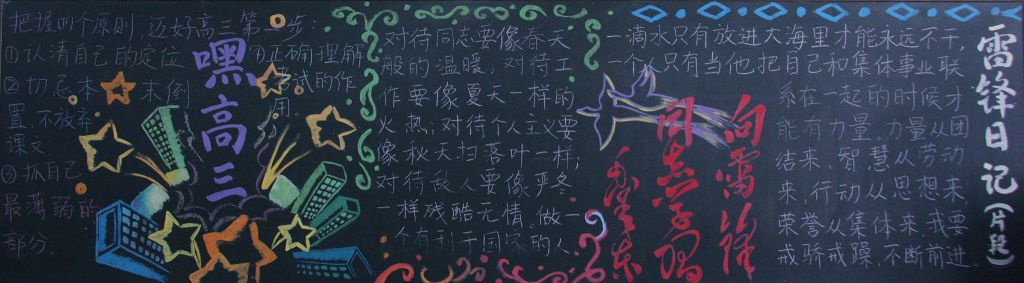 把握四个原则,迈好高三第一步:
①认清自己的定位
②切忌本末倒
置,不放弃
课文
③抓自己
最薄弱的
部分.
④正确理解
考试的作
用.
嘿
高
三
对待同志要像春天
般的温暖,对待工
作要像夏天一样的
火热,对待个人主义要
像秋天扫落叶一样;
对待敌人要像严冬
一样残酷无情。做一
个有利于国家的人
一滴水只有放进大海里才能永远不干,
一个人只有当他把自己和集体事业联
系在一起的时候才
能有力量。力量从团
结来,智慧从劳动
来,行动从思想来,
荣誉从集体来.我要
戒骄戒躁,不断前进.
向雷锋
同志学习
毛泽东
雷锋日记(片段)